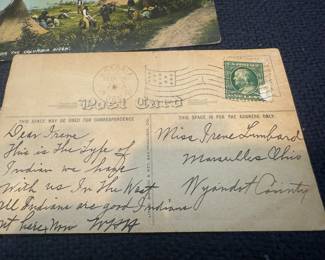 THE COLUMBIA RIVER.
Post Card
THIS SPACE MAY BE USED FOR CORRESPONDENCE
THIS SPACE IS FOR THE ADDRESS ONLY.
Dear Irene
This is the Type of
Indian we have
With us In The West
all Indians are good Indians
Now
Miss Irene Limhard
Marsailles Ohio
Wyandot County